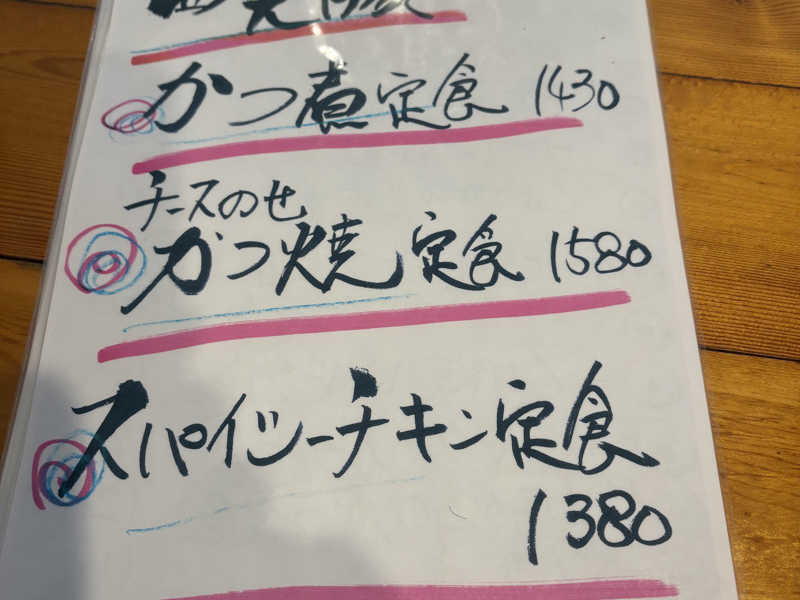 かつ煮定食 1430
チーズのせ
かつ焼定食 1580
スパイシーチキン定食
1380